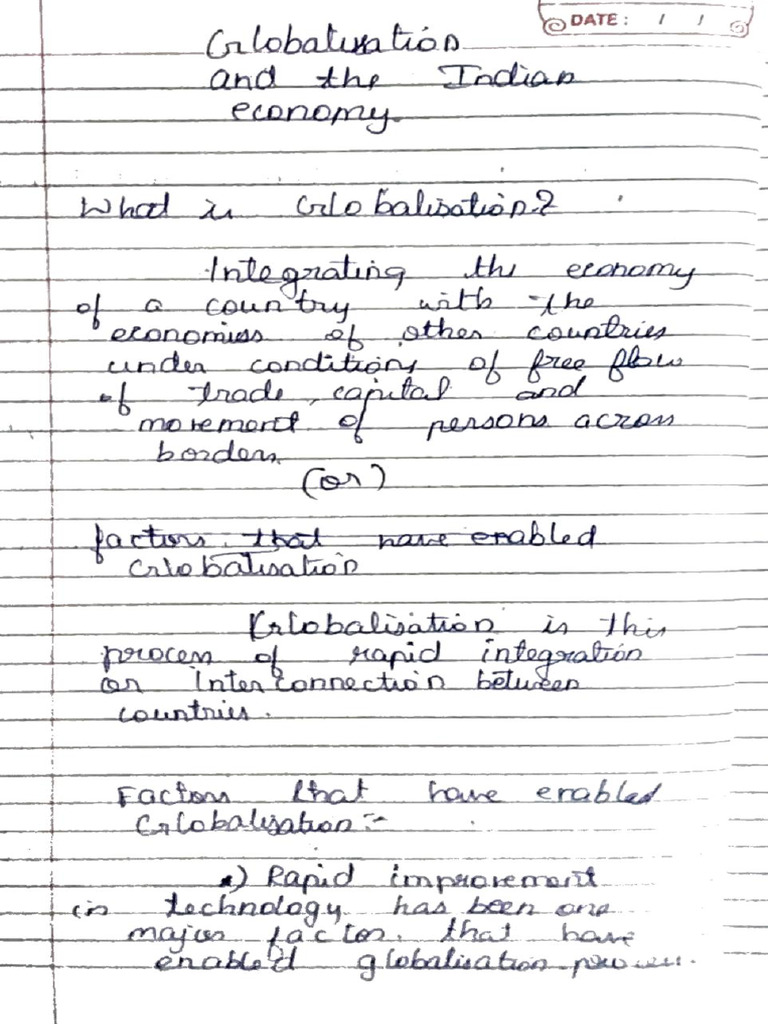 DATE: / /
Globalisation
and the Indian
economy.
What is Globalisation?
Integrating the economy
of a country with the
economies of other countries
under conditions of free flow
of trade, capital and
movement of persons across
borders.
(or)
factors that have enabled
Globalisation
Globalisation is this
process of rapid integration
or Interconnection between
countries.
Factors that have enabled
Globalisation:-
*) Rapid improvement
in technology has been one
major factor that have
enabled globalisation process.